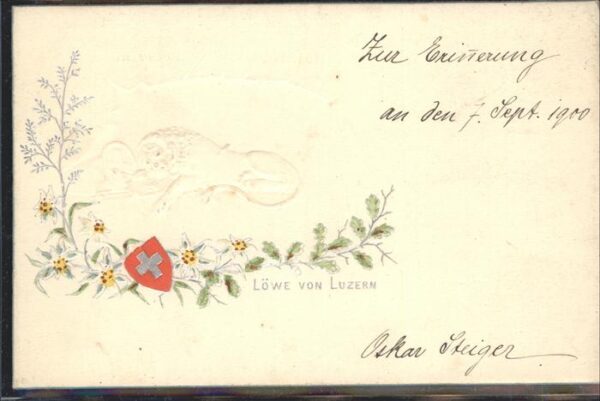 Zur Erinnerung
an den 7. Sept. 1900
LÖWE VON LUZERN
Oskar Steiger